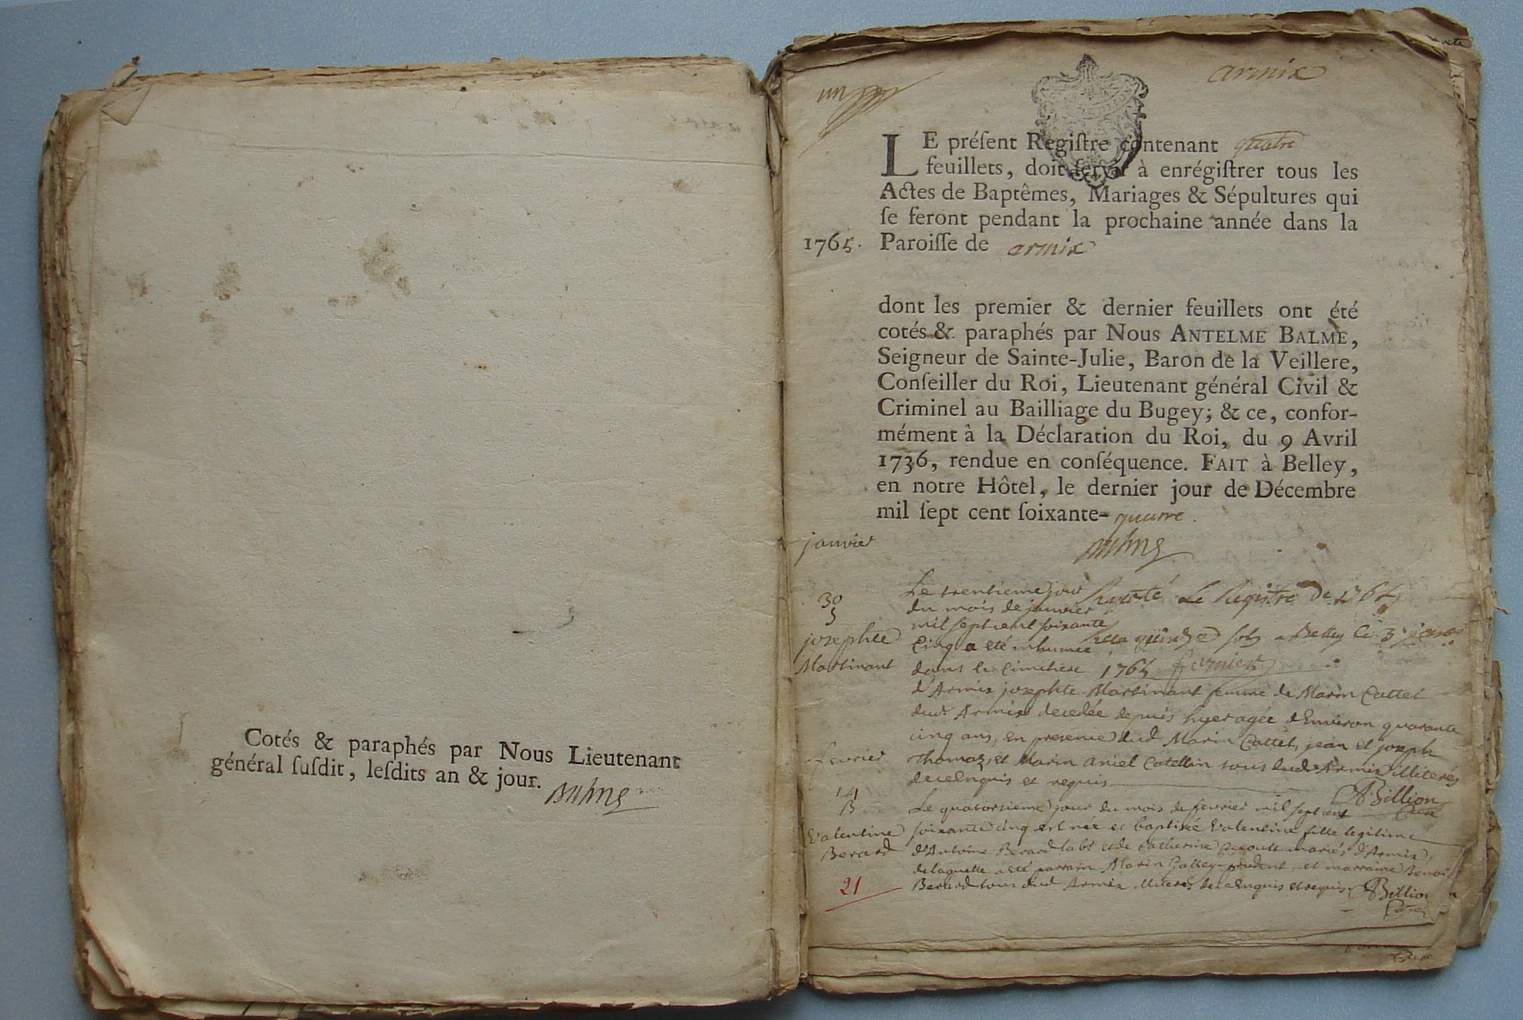 Cotés & paraphés par Nous Lieutenant
général ſuſdit, leſdits an & jour.
armix
LE préſent Regiſtre contenant quatre
feuillets, doit ſervir à enrégiſtrer tous les
Actes de Baptêmes, Mariages & Sépultures qui
ſe feront pendant la prochaine année dans la
1765. Paroiſſe de armix
dont les premier & dernier feuillets ont été
cotés & paraphés par Nous ANTELME BALME,
Seigneur de Sainte-Julie, Baron de la Veillere,
Conſeiller du Roi, Lieutenant général Civil &
Criminel au Bailliage du Bugey; & ce, confor-
mément à la Déclaration du Roi, du 9 Avril
1736, rendue en conſéquence. FAIT à Belley,
en notre Hôtel, le dernier jour de Décembre
mil ſept cent ſoixante-quatre.
janvier
30
josephte
Martinant
Le trentieme jour
du mois de janvier
mil sept cent soixante
cinq a été inhumée
dans le cimetiere
d'Armix josephte Martinant femme de Marin Cattet
dud Armix decedée depuis hyer agée d'Environ quarante
cinq ans, en presence dud Marin Cattet, jean et joseph
Le Registre de 1765
sols a Belley le 3
1765
fevrier
Thomas, et Marin aniel Catellin tous dud Armix illiterés
de ce enquis et requis
Billion
Curé
14
Valentine
Berard
Le quatorsieme jour du mois de fevrier mil sept cent
soixante cinq est née et baptisée Valentine fille legitime
d'Antoine Berard et de Catherine mariés d'Armix,
de laquelle a été parrain Marin et marraine
Berard tous dud Armix illiterés de ce enquis et requis
Billion
21